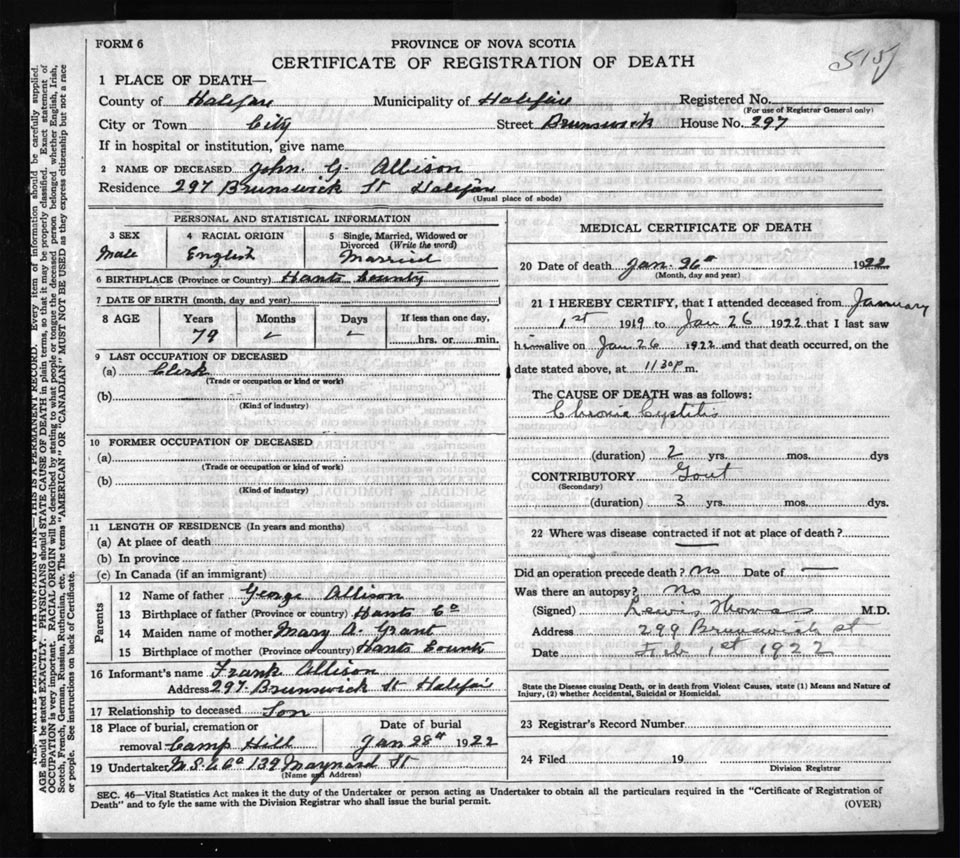 FORM 6
PROVINCE OF NOVA SCOTIA
CERTIFICATE OF REGISTRATION OF DEATH
1 PLACE OF DEATH—
County of Halifax Municipality of Halifax Registered No.
(For use of Registrar General only)
City or Town City Street Brunswick House No. 297
If in hospital or institution, give name
2 NAME OF DECEASED John. G. Allison
Residence 297 Brunswick St Halifax
(Usual place of abode)
PERSONAL AND STATISTICAL INFORMATION
3 SEX
Male
4 RACIAL ORIGIN
English
5 Single, Married, Widowed or
Divorced (Write the word)
Married
6 BIRTHPLACE (Province or Country) Hants County
7 DATE OF BIRTH (month, day and year)
8 AGE Years Months Days If less than one day,
79 - - hrs. or min.
9 LAST OCCUPATION OF DECEASED
(a) Clerk
(Trade or occupation or kind of work)
(b)
(Kind of industry)
10 FORMER OCCUPATION OF DECEASED
(a)
(Trade or occupation or kind of work)
(b)
(Kind of industry)
11 LENGTH OF RESIDENCE (In years and months)
(a) At place of death
(b) In province
(c) In Canada (if an immigrant)
Parents
12 Name of father George Allison
13 Birthplace of father (Province or country) Hants Co
14 Maiden name of mother Mary A. Grant
15 Birthplace of mother (Province or country) Hants County
16 Informant's name Frank Allison
Address 297 Brunswick St Halifax
17 Relationship to deceased Son
18 Place of burial, cremation or
removal Camp Hill
Date of burial
Jan 28th 1922
19 Undertaker N.S.U Co 139 Maynard St
(Name and Address)
MEDICAL CERTIFICATE OF DEATH
20 Date of death Jan. 26th 1922
(Month, day and year)
21 I HEREBY CERTIFY, that I attended deceased from January
1st 1919 to Jan 26 1922 that I last saw
him alive on Jan 26 1922 and that death occurred, on the
date stated above, at 11 30 p m.
The CAUSE OF DEATH was as follows:
Chronic Cystitis
(duration) 2 yrs. mos. dys
CONTRIBUTORY Gout
(Secondary)
(duration) 3 yrs. mos. dys.
22 Where was disease contracted if not at place of death?
Did an operation precede death? No Date of —
Was there an autopsy? No
(Signed) Lewis Thomas M.D.
Address 299 Brunswick st
Date Feb 1st 1922
State the Disease causing Death, or in death from Violent Causes, state (1) Means and Nature of
Injury, (2) whether Accidental, Suicidal or Homicidal.
23 Registrar's Record Number
24 Filed 19
Division Registrar
SEC. 46—Vital Statistics Act makes it the duty of the Undertaker or person acting as Undertaker to obtain all the particulars required in the "Certificate of Registration of
Death" and to fyle the same with the Division Registrar who shall issue the burial permit.
(OVER)
N.B.—WRITE PLAINLY WITH UNFADING INK—THIS IS A PERMANENT RECORD. Every item of information should be carefully supplied.
AGE should be stated EXACTLY. PHYSICIANS should STATE CAUSE OF DEATH in plain terms, so that it may be properly classified. Exact statement of
OCCUPATION is very important. RACIAL ORIGIN will be described by stating to what people or tongue the deceased person belonged whether English, Irish,
Scotch, French, German, Russian, Ruthenian, etc. The terms "AMERICAN" OR "CANADIAN" MUST NOT BE USED as they express citizenship but not a race
or people. See instructions on back of Certificate.